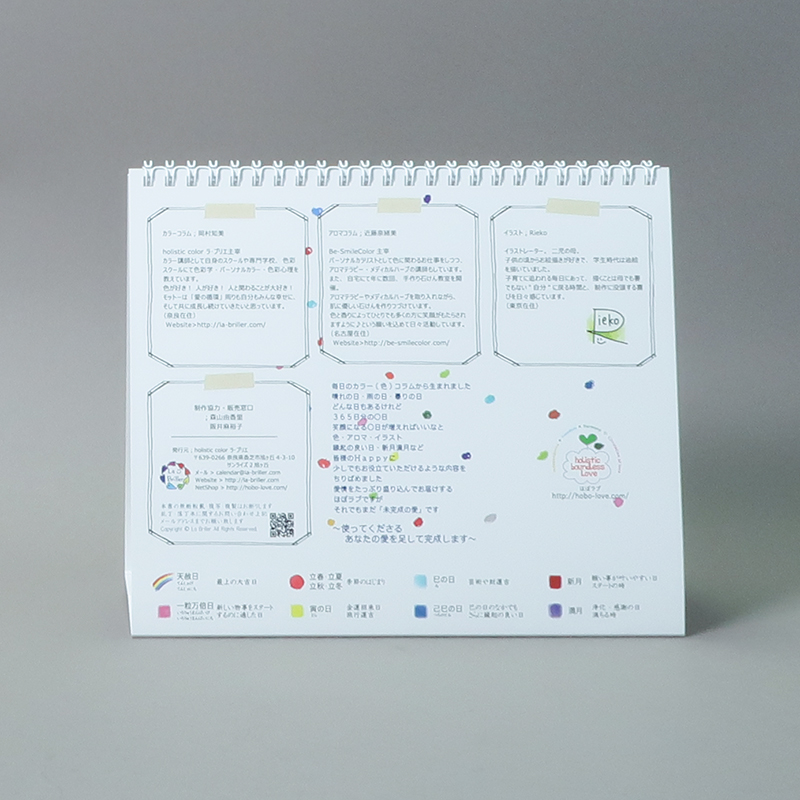 カラーコラム ; 岡村知美
holistic color ラ・ブリエ主宰
カラー講師として自身のスクールや専門学校、色彩
スクールにて色彩学・パーソナルカラー・色彩心理を
教えています。
色が好き! 人が好き! 人と関わることが大好き!
モットーは「愛の循環」周りも自分もみんな幸せに、
そして共に成長し続けていきたいと思っています。
(奈良在住)
Website>http://la-briller.com/
アロマコラム ; 近藤奈緒美
Be-SmileColor 主宰
パーソナルカラリストとして色に関わるお仕事をしつつ、
アロマテラピー・メディカルハーブの講師もしています。
また、自宅にて年に数回、手作り石けん教室を開
催。
アロマテラピーやメディカルハーブを取り入れながら、
肌に優しい石けんを作りつづけています。
色と香りによってひとりでも多くの方に笑顔がもたらさ
れますように♪という願いを込めて日々活動しています。
(名古屋在住)
Website>http://be-smilecolor.com/
イラスト ; Rieko
イラストレーター。二児の母。
子供の頃からお絵描きが好きで、学生時代は油絵
を描いていました。
子育てに追われる毎日にあって、描くことは母でも妻
でもない"自分"に戻る時間と、制作に没頭する喜
びを日々感じています。
(東京在住)
Rieko
制作協力・販売窓口
; 森山由香里
阪井麻裕子
発行元 ; holistic color ラ・ブリエ
〒639-0266 奈良県香芝市旭ヶ丘 4-3-10
サンライズ2旭ヶ丘
メール > calendar@la-briller.com
Website > http://la-briller.com
NetShop > http://hobo-love.com/
La Briller
メールアドレスまでお願い致します
Copyright © La Briller All Rights Reserved.
毎日のカラー(色)コラムから生まれました
晴れの日・雨の日・曇りの日
どんな日もあるけれど
365日分の〇日
笑顔になる〇日が増えればいいなと
色・アロマ・イラスト
縁起の良い日・新月満月など
皆様のHappyに
少しでもお役立ていただけるような内容を
ちりばめました
愛情をたっぷり盛り込んでお届けする
ほぼラブですが
それでもまだ「未完成の愛」です
～使ってくださる
あなたの愛を足して完成します～
holistic
boundless
Love
ほぼラブ
http://hobo-love.com/
天赦日 最上の大吉日
立春・立夏
立秋・立冬 季節のはじまり
巳の日 芸術や財運吉
新月 願い事が叶いやすい日
スタートの時
一粒万倍日 新しい物事をスタート
するのに適した日
寅の日 金運招来日
旅行運吉
己巳の日 巳の日のなかでも
満月 浄化・感謝の日
満ちる時